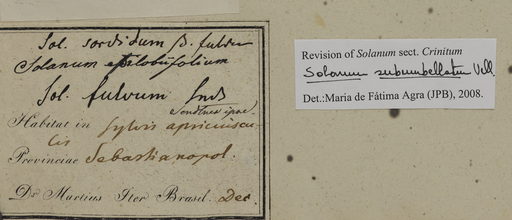 Sol. sordidum β. fulvum
Solanum
Sol. fulvum
Sendtner ipse.
Habitat in sylvis apricius cu-
lis
Provinciae Sebastianopol.
Dr Martius Iter Brasil. Dec.
Revision of Solanum sect. Crinitum
Solanum subumbellatum Vell.
Det.:Maria de Fátima Agra (JPB), 2008.